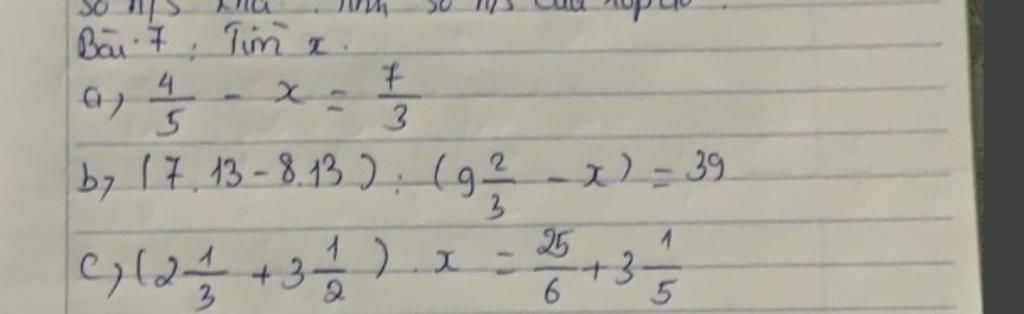 Bài 7: Tìm x.
a, 4/5 - x = 7/3
b, (7.13 - 8.13) : (9 2/3 - x) = 39
c, (2 1/3 + 3 1/2) . x = 25/6 + 3 1/5